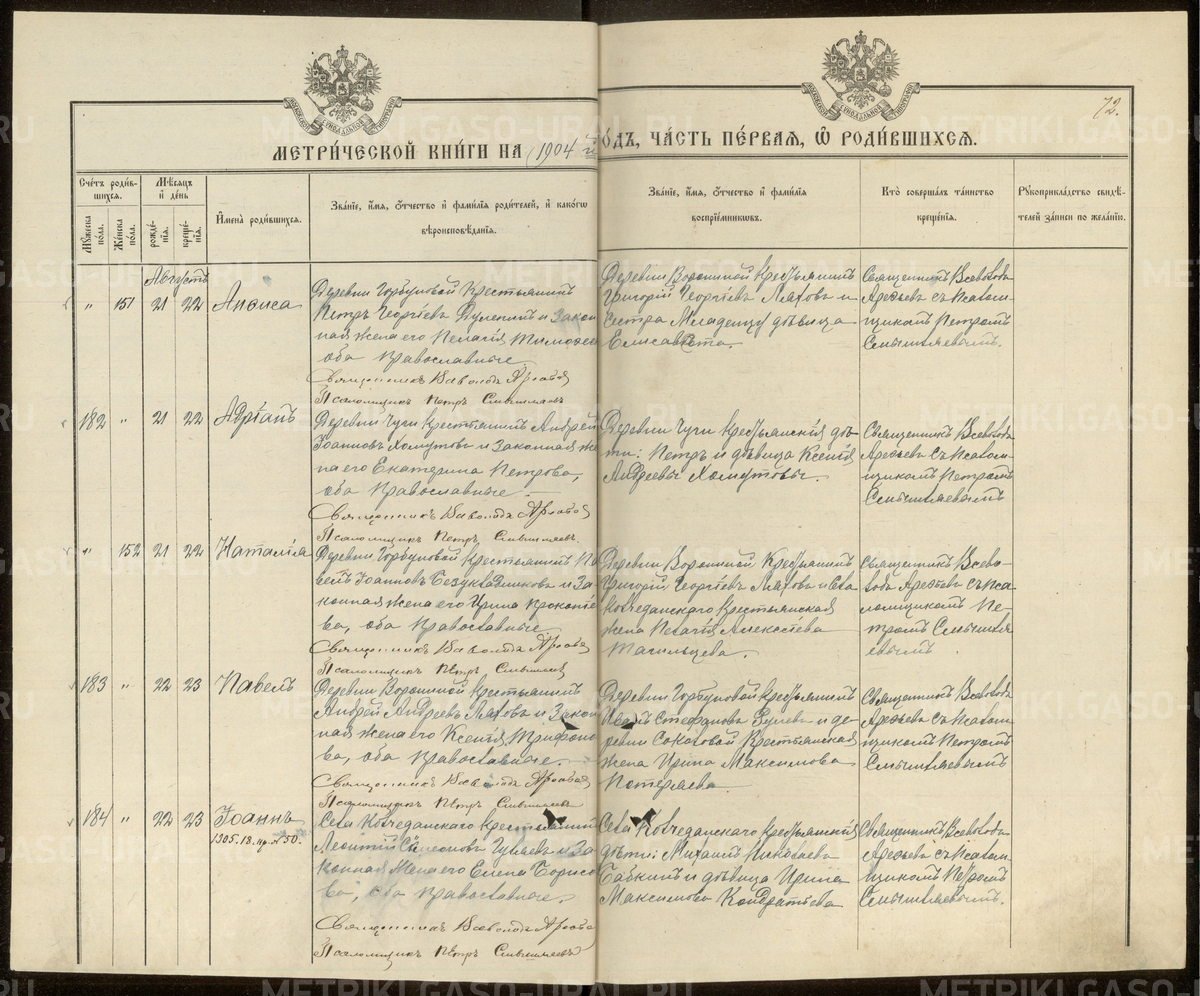 72.
МЕТРИ́ЧЕСКОЙ КНИ́ГИ НА 1904 й
ГО́ДЪ, ЧА́СТЬ ПЕ́РВАЯ, Ѡ РОДИ́ВШИХСЯ.
Сче́тъ роди́в-
шихся.
Мꙋ́жеска по́ла.
Же́нска по́ла.
Мѣ́сяцъ и҆ де́нь
рожде́-нїя.
креще́-нїя.
И҆мена̀ роди́вшихся.
Зва́нїе, и҆́мя, ѻ҆́тчество и҆ фами́лїя роди́телей, и҆ како́гѡ
вѣроисповѣ́данїя.
Зва́нїе, и҆́мя, ѻ҆́тчество и҆ фами́лїя
воспрїе́мниковъ.
Кто̀ соверша́лъ та́инство
креще́нїя.
Рꙋкоприкла́дство свидѣ́-
телей за́писи по жела́нїю.
Августъ
" 151 21 22 Анѳиса
Деревни Горбуновой Крестьянинъ
Петръ Георгіевъ и закон
ная жена его Пелагія Тимоѳее
оба Православные
Священникъ Всеволодъ Арефьевъ
Псаломщикъ Петръ Смышляевъ
Деревни Ворониной Крестьянинъ
Григорій Георгіевъ Ляховъ и
сестра Младенцу дѣвица
Елисавета.
Священникъ Всеволодъ
Арефьевъ съ Псалом-
щикомъ Петромъ
Смышляевымъ.
182 " 21 22 Адріанъ
Деревни Чуги Крестьянинъ Андрей
Іоанновъ Хомутовъ и Законная же
на его Екатерина Петрова,
оба Православные.
Священникъ Всеволодъ Арефьевъ
Псаломщикъ Петръ Смышляевъ.
Деревни Чуги Крестьянскія дѣ-
ти: Петръ и дѣвица Ксенія
Андреевы Хомутовы.
Священникъ Всеволодъ
Арефьевъ съ Псалом-
щикомъ Петромъ
Смышляевымъ
" 152 21 22 Наталія
Деревни Горбуновой Крестьянинъ Па
велъ Іоанновъ Безукладниковъ и За
конная жена его Ирина Прокопіе
ва, оба Православные
Священникъ Всеволодъ Арефьевъ
Псаломщикъ Петръ Смышляевъ
Деревни Ворониной Крестьянинъ
Григорій Георгіевъ Ляховъ и Села
Колчеданскаго Крестьянская
жена Пелагія Алексѣева
Тагильцева.
Священникъ Всево-
лодъ Арефьевъ съ Пса-
ломщикомъ Пе-
тромъ Смышля-
евымъ.
183 " 22 23 Павелъ
Деревни Ворониной Крестьянинъ
Андрей Андреевъ Ляховъ и Закон
ная жена его Ксенія Трифоно
ва, оба Православные.
Священникъ Всеволодъ Арефьевъ
Псаломщикъ Петръ Смышляевъ
Деревни Горбуновой Крестьянинъ
Иванъ Стефановъ и де-
ревни Соколовой Крестьянская
жена Ирина Максимова
Потеряева.
Священникъ Всеволодъ
Арефьевъ съ Псалом-
щикомъ Петромъ
Смышляевымъ
184 " 22 23 Іоаннъ
1905. 18. №50.
Села Колчеданскаго Крестьянинъ
Леонтій Симеоновъ Гуляевъ и За
конная Жена его Елена Борисо
ва, оба Православные.
Священникъ Всеволодъ Арефьевъ
Псаломщикъ Петръ Смышляевъ
Села Колчеданскаго Крестьянскія
дѣти: Михаилъ Николаевъ
Бабкинъ и дѣвица Ирина
Максимова Кондратьева
Священникъ Всеволодъ
Арефьевъ съ Псалом-
щикомъ Петромъ
Смышляевымъ.
METRIKI.GASO-URAL.RU